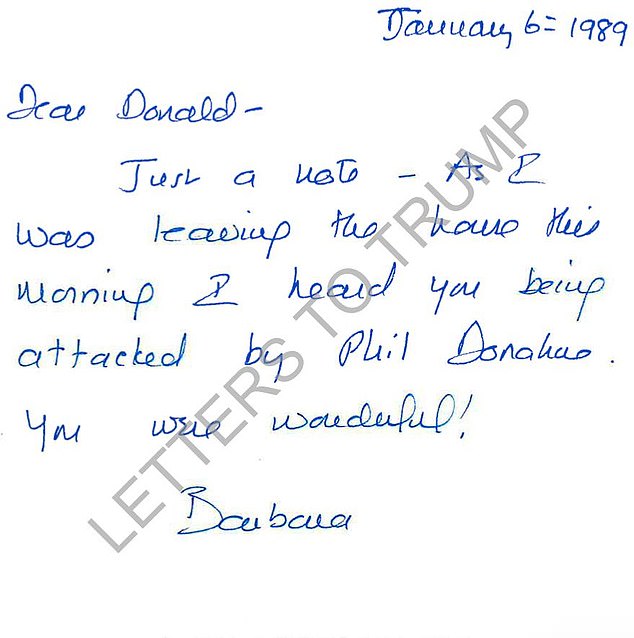 January 6= 1989
Dear Donald-
Just a note - As I
was leaving the house this
morning I heard you being
attacked by Phil Donahue.
You were wonderful!
Barbara
LETTERS TO TRUMP